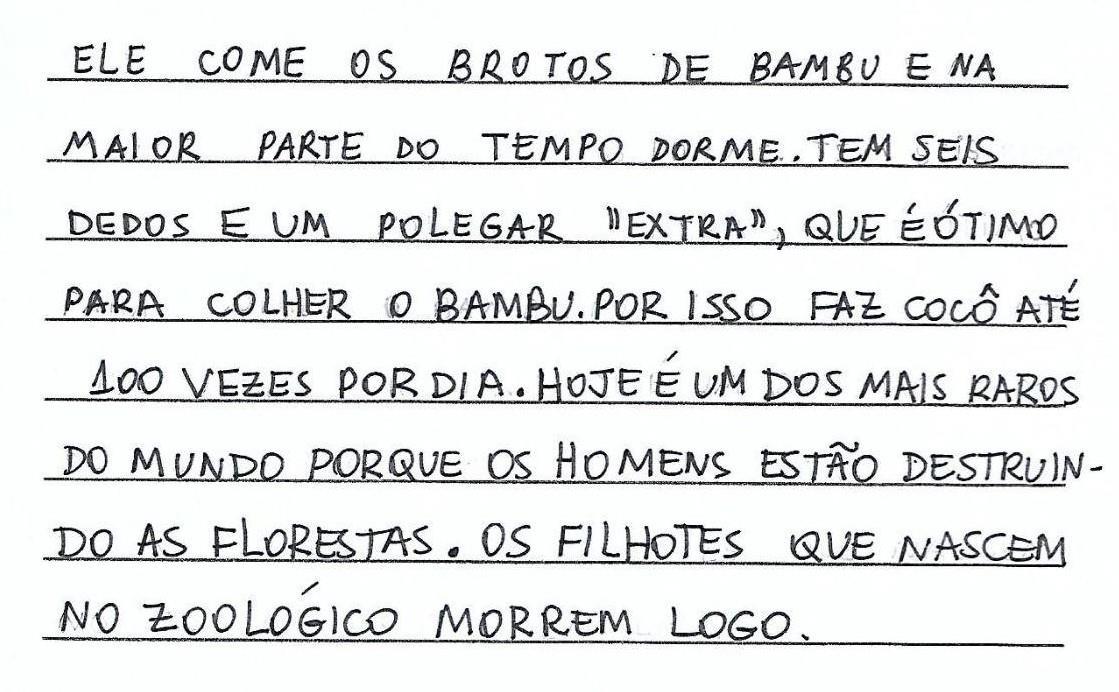 ELE COME OS BROTOS DE BAMBU E NA
MAIOR PARTE DO TEMPO DORME. TEM SEIS
DEDOS E UM POLEGAR "EXTRA", QUE É ÓTIMO
PARA COLHER O BAMBU. POR ISSO FAZ COCÔ ATÉ
100 VEZES POR DIA. HOJE É UM DOS MAIS RAROS
DO MUNDO PORQUE OS HOMENS ESTÃO DESTRUIN-
DO AS FLORESTAS. OS FILHOTES QUE NASCEM
NO ZOOLÓGICO MORREM LOGO.